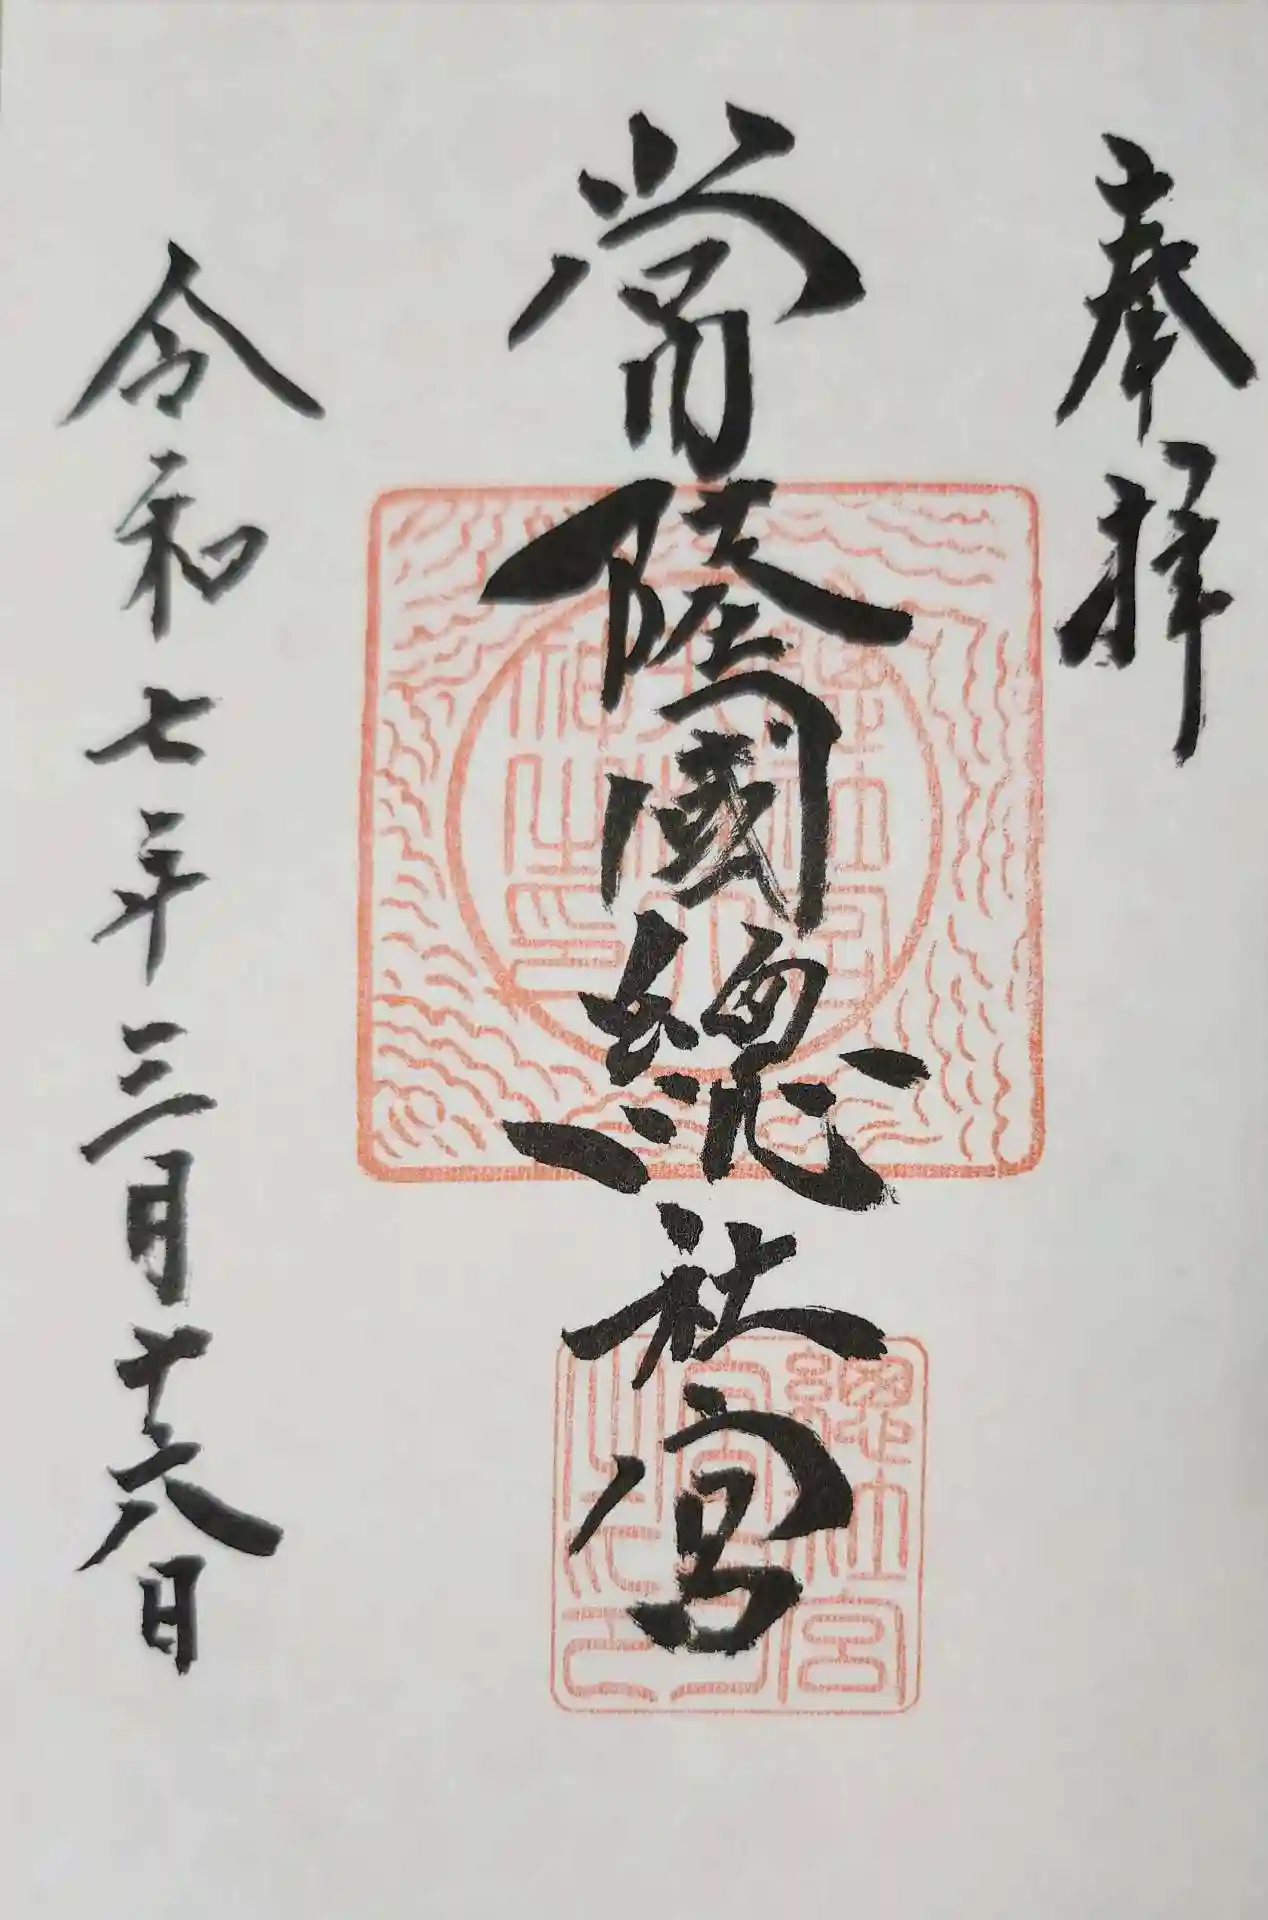 奉拝
常陸國總社宮
令和七年三月十六日
總社宮